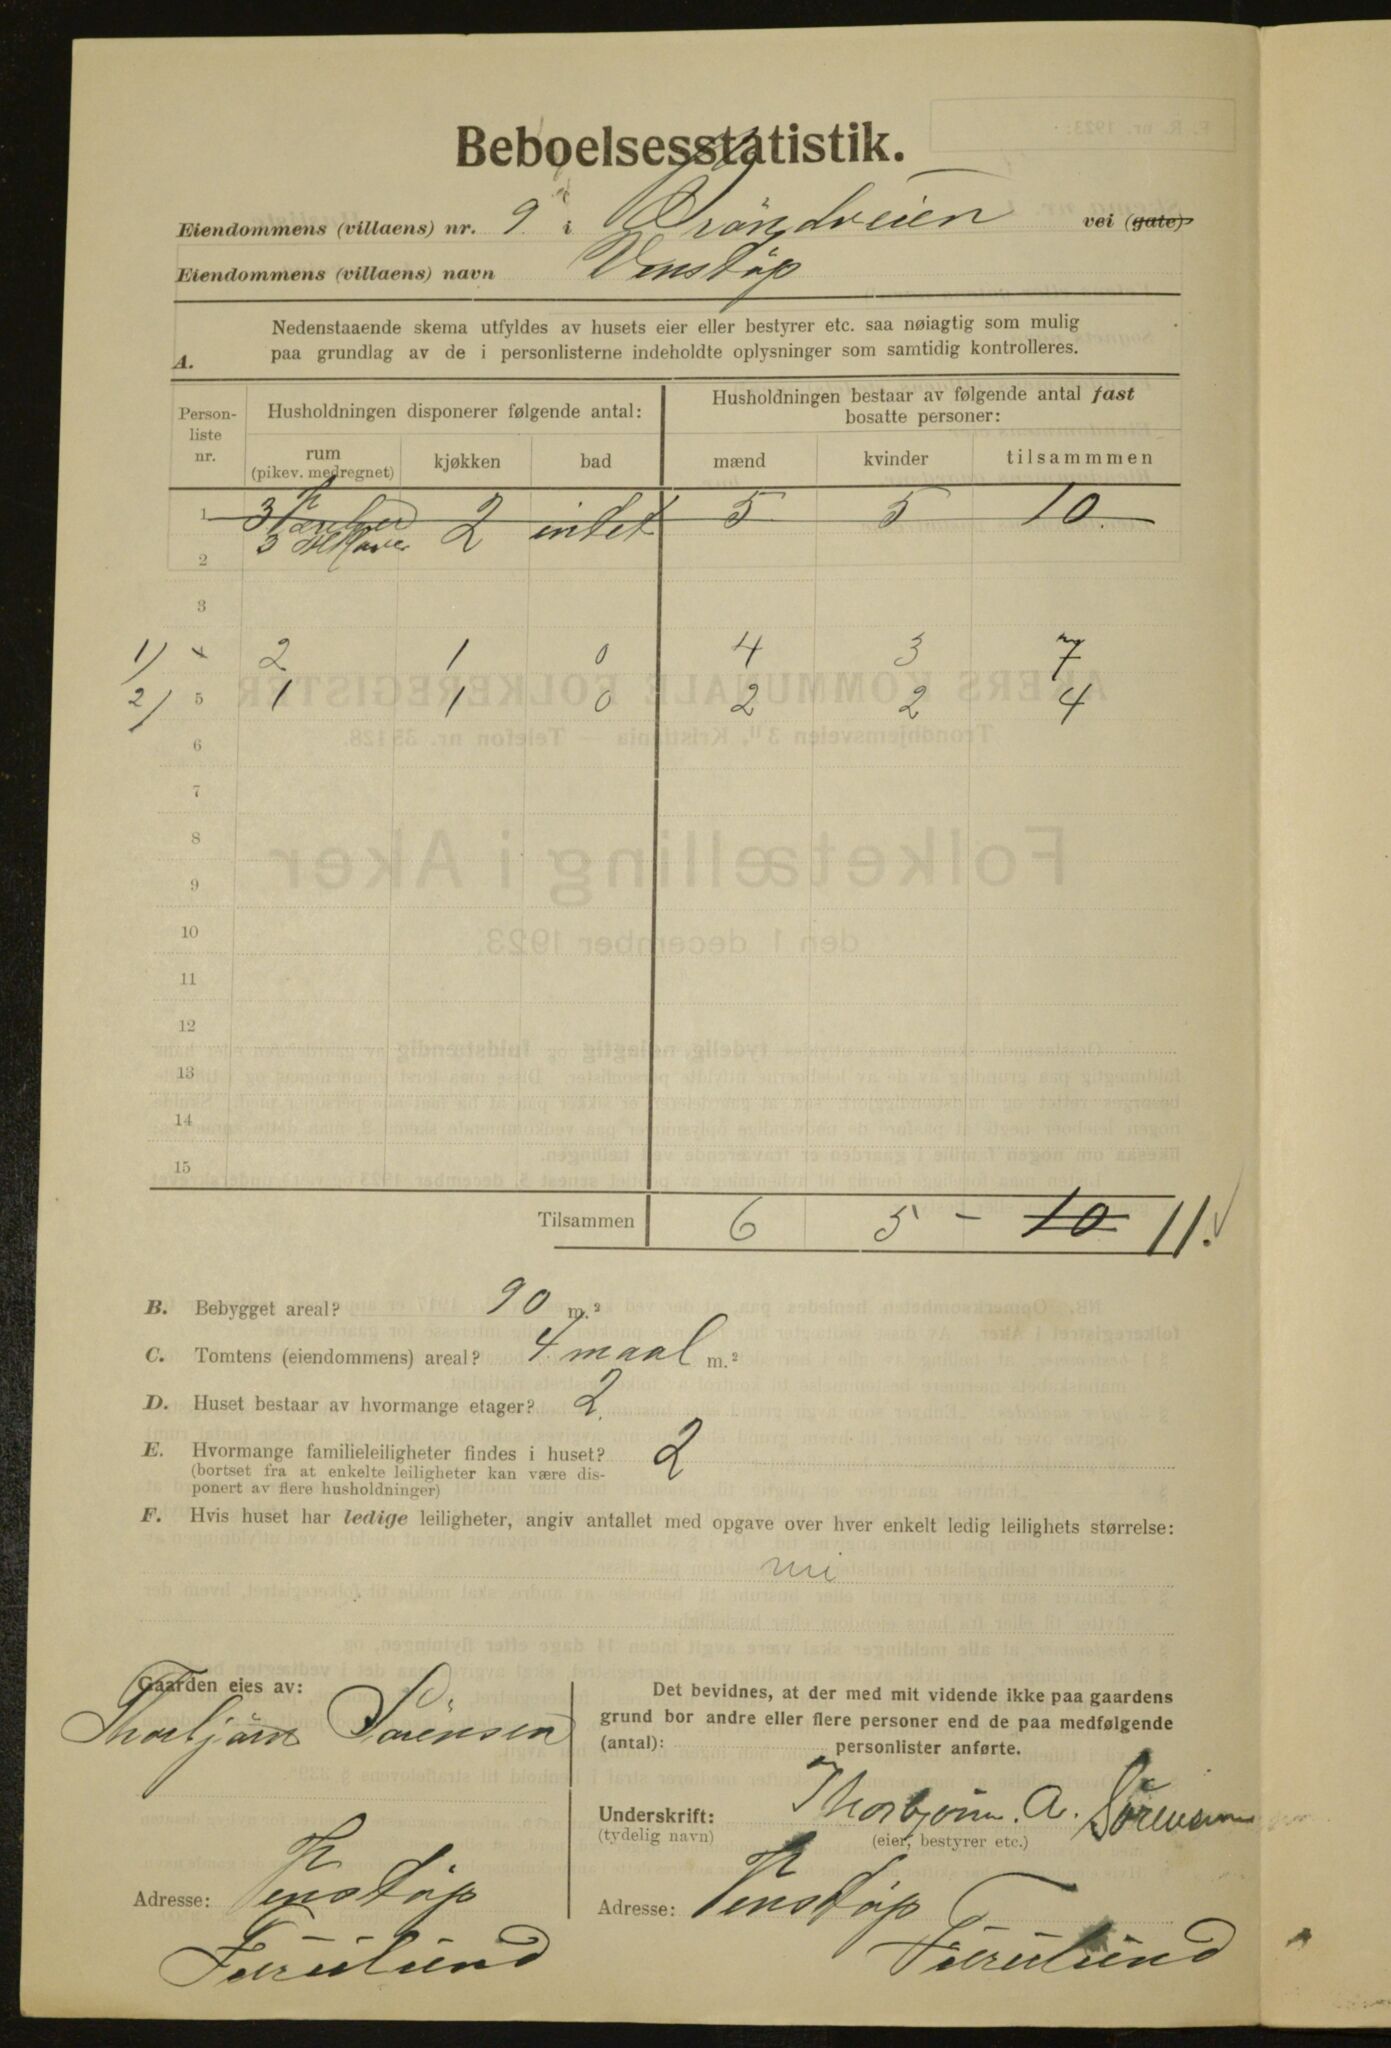 Beboelsesstatistik.
Eiendommens (villaens) nr. 9 i Gröndveien vei (gate)
Eiendommens (villaens) navn Venstöp
A. Nedenstaaende skema utfyldes av husets eier eller bestyrer etc. saa nøiagtig som mulig
paa grundlag av de i personlisterne indeholdte oplysninger som samtidig kontrolleres.
Person-liste nr. Husholdningen disponerer følgende antal: Husholdningen bestaar av følgende antal fast bosatte personer:
rum (pikev. medregnet) kjøkken bad mænd kvinder tilsammmen
1 3 2 intet 5 5 10
2 3
3
1) 4 2 1 0 4 3 7
2) 5 1 1 0 2 2 4
6
7
8
9
10
11
12
13
14
15
Tilsammen 6 5 - 10 11.
B. Bebygget areal? 90 m.²
C. Tomtens (eiendommens) areal? 4 maal m.²
D. Huset bestaar av hvormange etager? 2
E. Hvormange familieleiligheter findes i huset? 2
(bortset fra at enkelte leiligheter kan være dis-
ponert av flere husholdninger)
F. Hvis huset har ledige leiligheter, angiv antallet med opgave over hver enkelt ledig leilighets størrelse:
Gaarden eies av:
Thorbjörn Sörensen
Adresse: Venstöp
Furulund
Det bevidnes, at der med mit vidende ikke paa gaardens
grund bor andre eller flere personer end de paa medfølgende
(antal): personlister anførte.
Underskrift: Thorbjørn. A. Sörensen
(tydelig navn) (eier, bestyrer etc.)
Adresse: Venstöp
Furulund